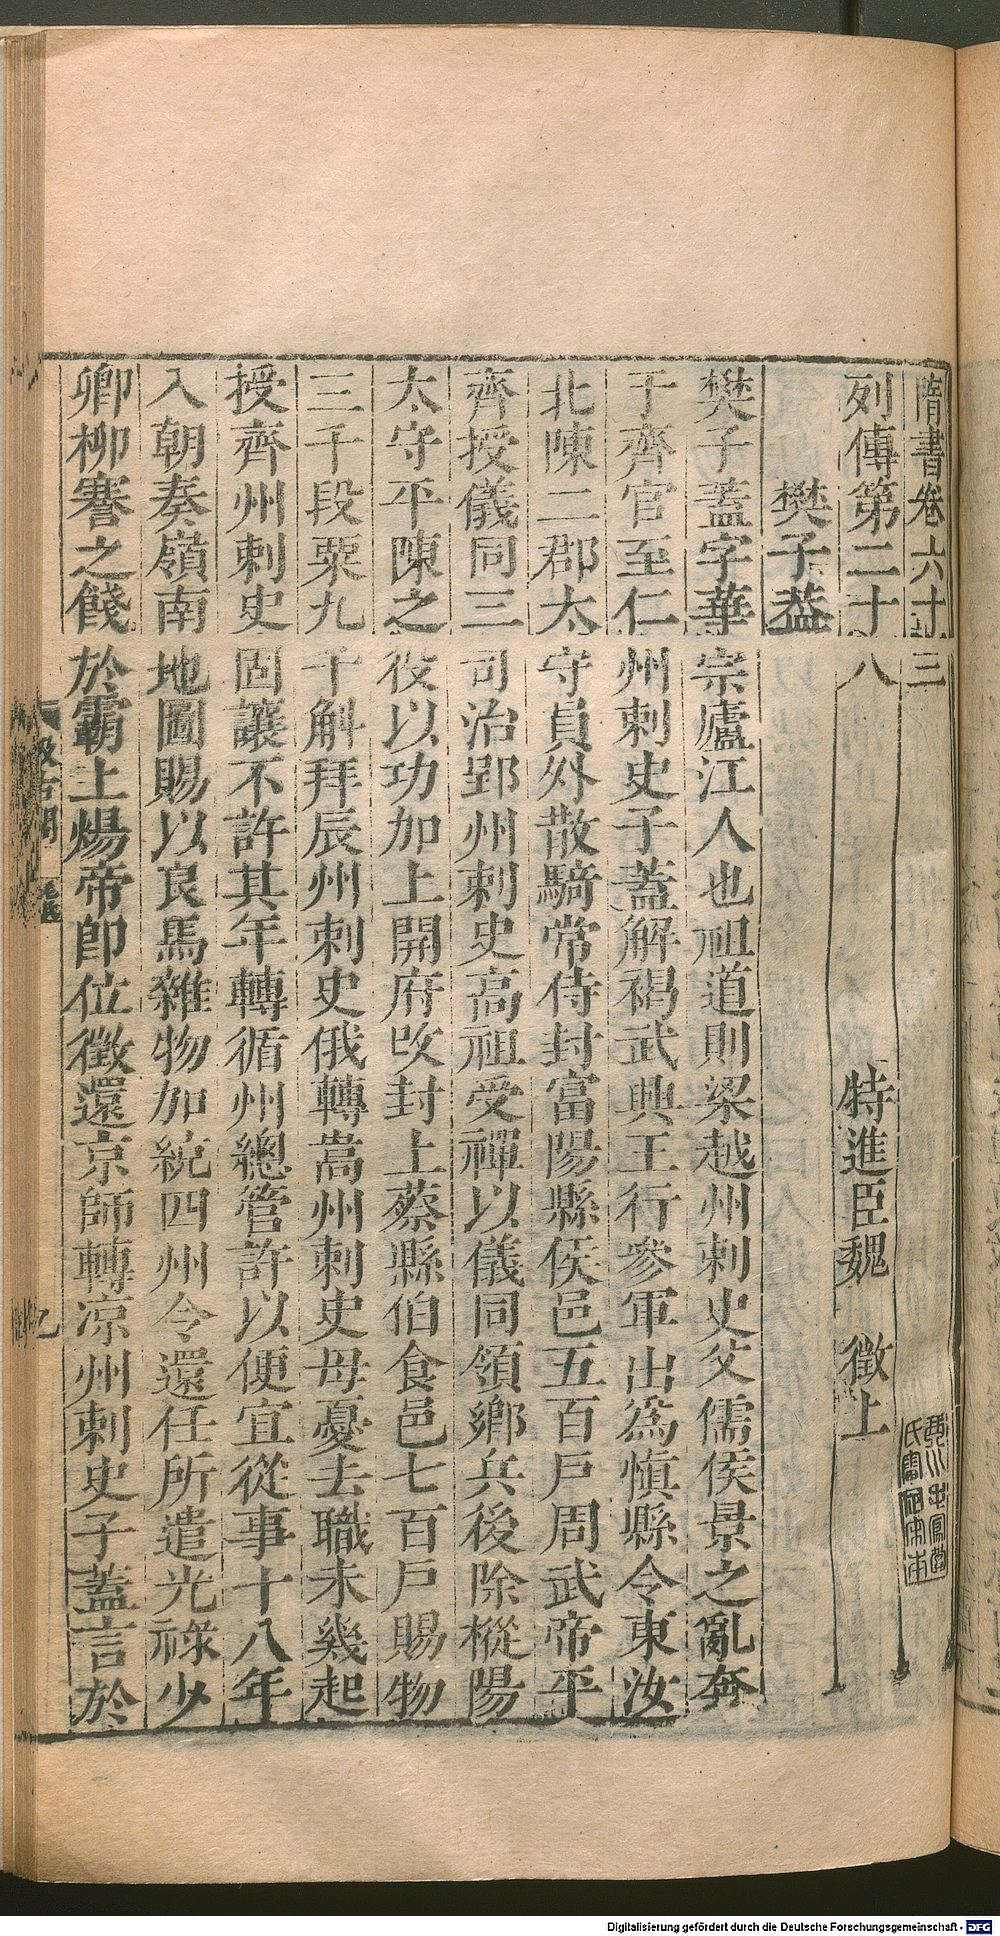 隋書卷六十三
列傳第二十八　特進臣魏　徵上
樊子葢
樊子蓋字華宗廬江人也祖道則梁越州刺史父儒侯景之亂奔
于齊官至仁州刺史子蓋解褐武興王行參軍出爲慎縣令東汝
北陳二郡太守員外散騎常侍封富陽縣侯邑五百戸周武帝平
齊授儀同三司治郢州刺史高祖受禪以儀同領鄉兵後除樅陽
太守平陳之役以功加上開府改封上蔡縣伯食邑七百戸賜物
三千段粟九千斛拜辰州刺史俄轉嵩州刺史母憂去職未幾起
授齊州刺史固讓不許其年轉循州總管許以便宜從事十八年
入朝奏嶺南地圖賜以良馬雜物加統四州令還任所遣光祿少
卿柳謇之餞於霸上煬帝卽位徵還京師轉凉州刺史子蓋言於
Digitalisierung gefördert durch die Deutsche Forschungsgemeinschaft - DFG